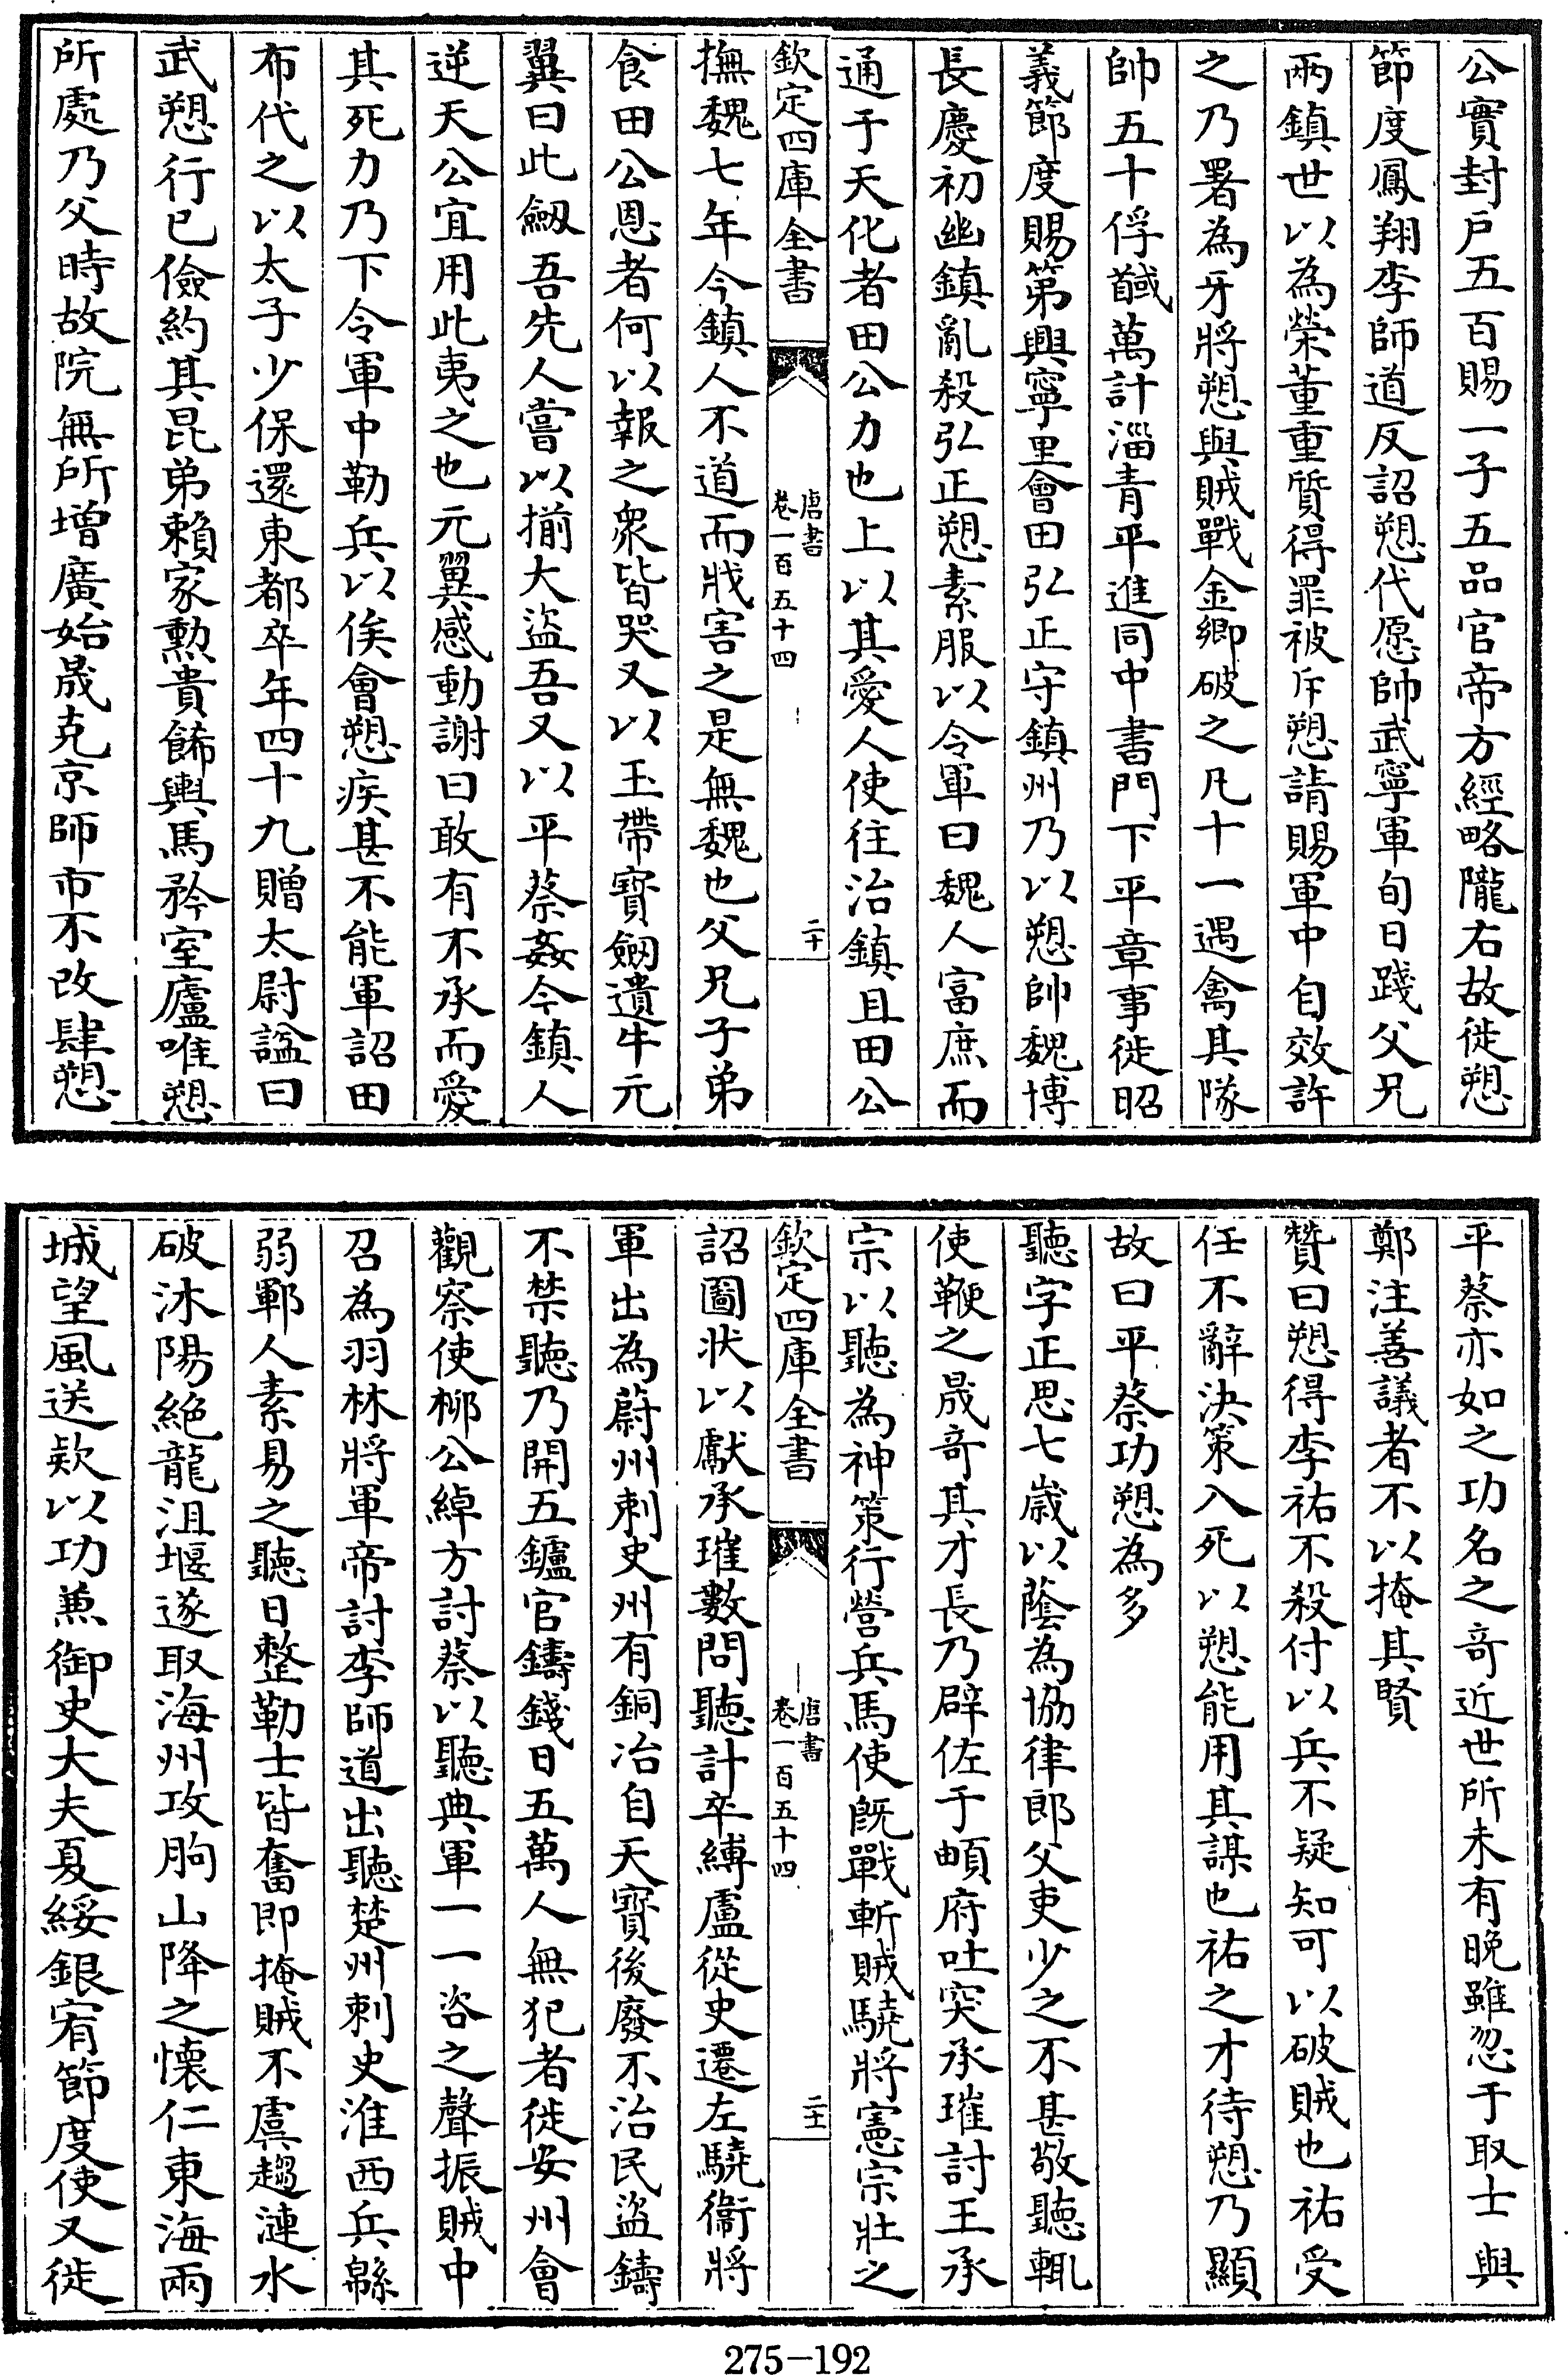 公實封戶五百賜一子五品官帝方經略隴右故徙愬
節度鳳翔李師道反詔愬代愿帥武寧軍旬日踐父兄
兩鎮世以為榮董重質得罪被斥愬請賜軍中自效許
之乃署為牙將愬與賊戰金鄉破之凡十一遇禽其隊
帥五十俘馘萬計淄青平進同中書門下平章事徙昭
義節度賜第興寧里會田弘正守鎮州乃以愬帥魏博
長慶初幽鎮亂殺弘正愬素服以令軍曰魏人富庶而
通于天化者田公力也上以其愛人使往治鎮且田公
欽定四庫全書
唐書
卷一百五十四
二十
撫魏七年今鎮人不道而戕害之是無魏也父兄子弟
食田公恩者何以報之衆皆哭又以玉帶寳劔遺牛元
翼曰此劔吾先人嘗以揃大盜吾又以平蔡姦今鎮人
逆天公宜用此夷之也元翼感動謝曰敢有不承而愛
其死力乃下令軍中勒兵以俟會愬疾甚不能軍詔田
布代之以太子少保還東都卒年四十九贈太尉諡曰
武愬行已儉約其昆弟賴家勲貴飾輿馬矜室廬唯愬
所處乃父時故院無所增廣始晟克京師市不改肆愬
平蔡亦如之功名之竒近世所未有晚雖忽于取士與
鄭注善議者不以掩其賢
贊曰愬得李祐不殺付以兵不疑知可以破賊也祐受
任不辭決策入死以愬能用其謀也祐之才待愬乃顯
故曰平蔡功愬為多
聽字正思七歲以蔭為協律郎父吏少之不甚敬聽輒
使鞭之晟竒其才長乃辟佐于頔府吐突承璀討王承
宗以聽為神策行營兵馬使旣戰斬賊驍將憲宗壯之
欽定四庫全書
唐書
卷一百五十四
二十一
詔圖狀以獻承璀數問聽計卒縛盧從史遷左驍衛將
軍出為蔚州刺史州有銅冶自天寳後廢不治民盜鑄
不禁聽乃開五鑪官鑄錢日五萬人無犯者徙安州會
觀察使栁公綽方討蔡以聽典軍一一咨之聲振賊中
召為羽林將軍帝討李師道出聽楚州刺史淮西兵緜
弱鄆人素易之聽日整勒士皆奮即掩賊不虞趨漣水
破沭陽絶龍沮堰遂取海州攻朐山降之懐仁東海兩
城望風送欵以功兼御史大夫夏綏銀宥節度使又徙
275-192